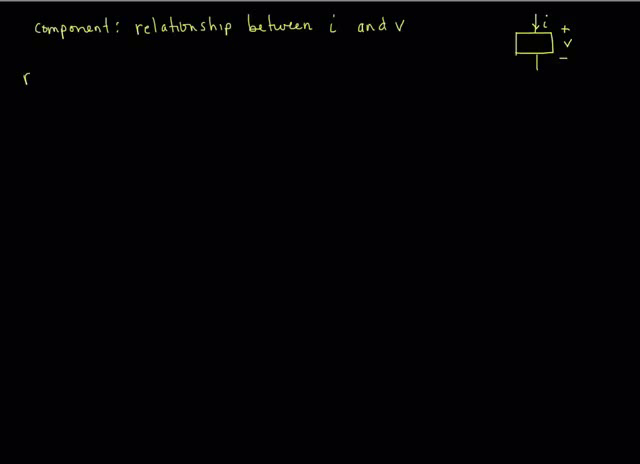 component: relationship between i and v
i
+
v
−
r